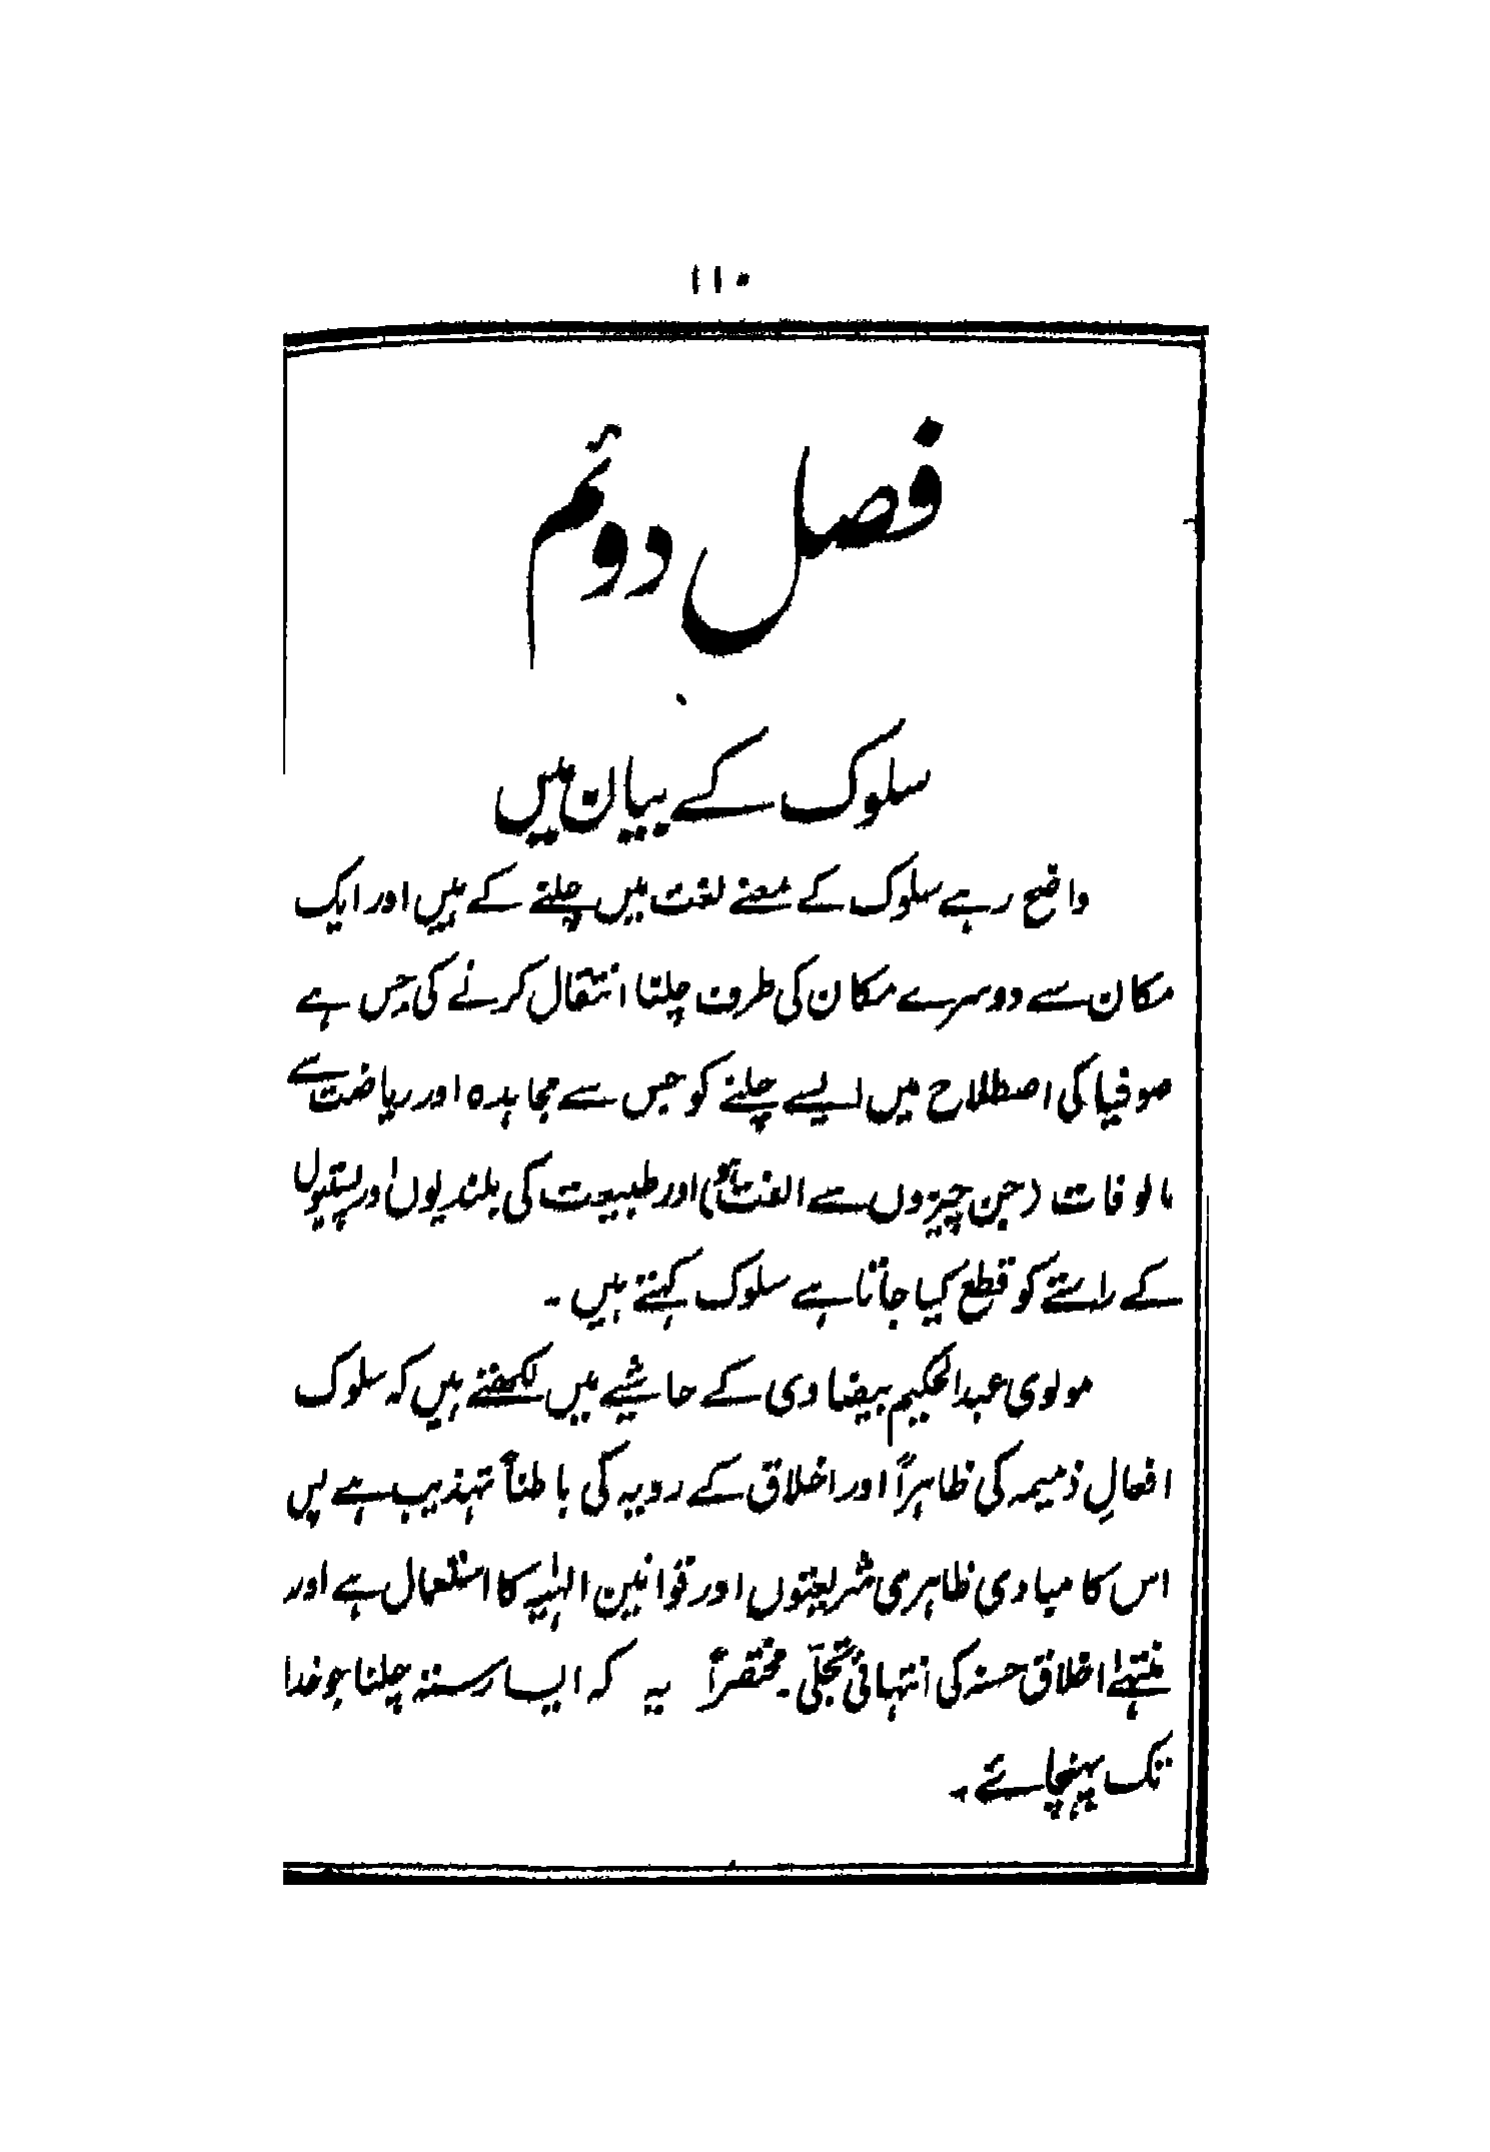 ۱۱۰
فصل دوئم
سلوک کے بیان میں
واضح رہے سلوک کے معنے لغت میں چلنے کے ہیں اور ایک
مکان سے دوسرے مکان کی طرف چلنا انتقال کرنے کی جنس ہے
صوفیا کی اصطلاح میں ایسے چلنے کو جس سے مجاہدہ اور ریاضت سے
مالوفات (جن چیزوں سے الفت ہو) اور طبیعت کی بلندیوں اور پستیوں
کے راستے کو قطع کیا جاتا ہے سلوک کہتے ہیں ۔
مولوی عبدالحکیم بیضاوی کے حاشیے میں لکھتے ہیں کہ سلوک
افعالِ ذمیمہ کی ظاہراً اور اخلاق کے رویہ کی باطناً تہذیب ہے پس
اس کا مبادی ظاہری شریعتوں اور قوانین الہٰیہ کا استعمال ہے اور
منتہٰے اخلاق حسنہ کی انتہائی تجلّی ۔ مختصراً یہ کہ ایسا رستہ چلنا جو خدا
تک پہنچائے ۔